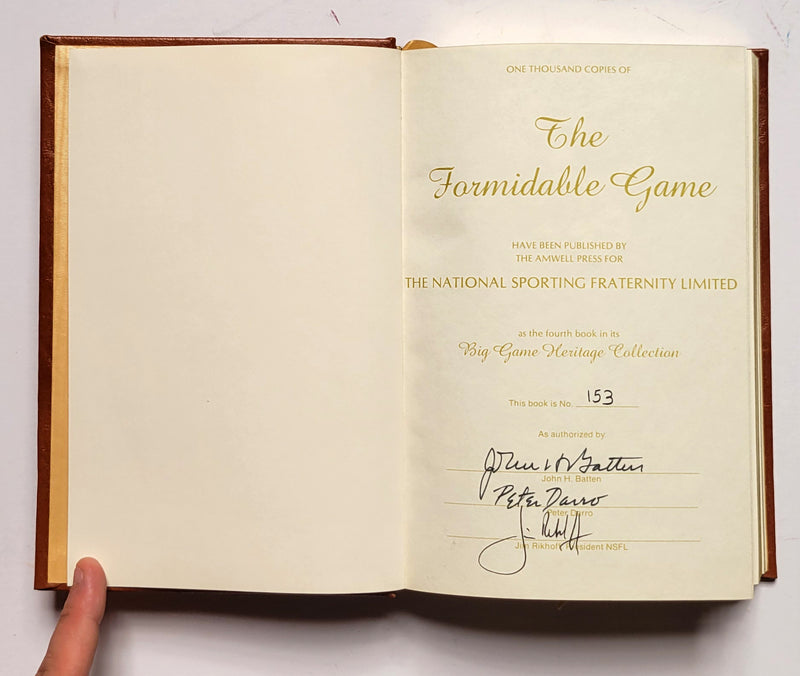 ONE THOUSAND COPIES OF
The
Formidable Game
HAVE BEEN PUBLISHED BY
THE AMWELL PRESS FOR
THE NATIONAL SPORTING FRATERNITY LIMITED
as the fourth book in its
Big Game Heritage Collection
This book is No. 153
As authorized by
John H Batten
John H. Batten
Peter Darro
Peter Darro
Jim Rikhoff
Jim Rikhoff, President NSFL